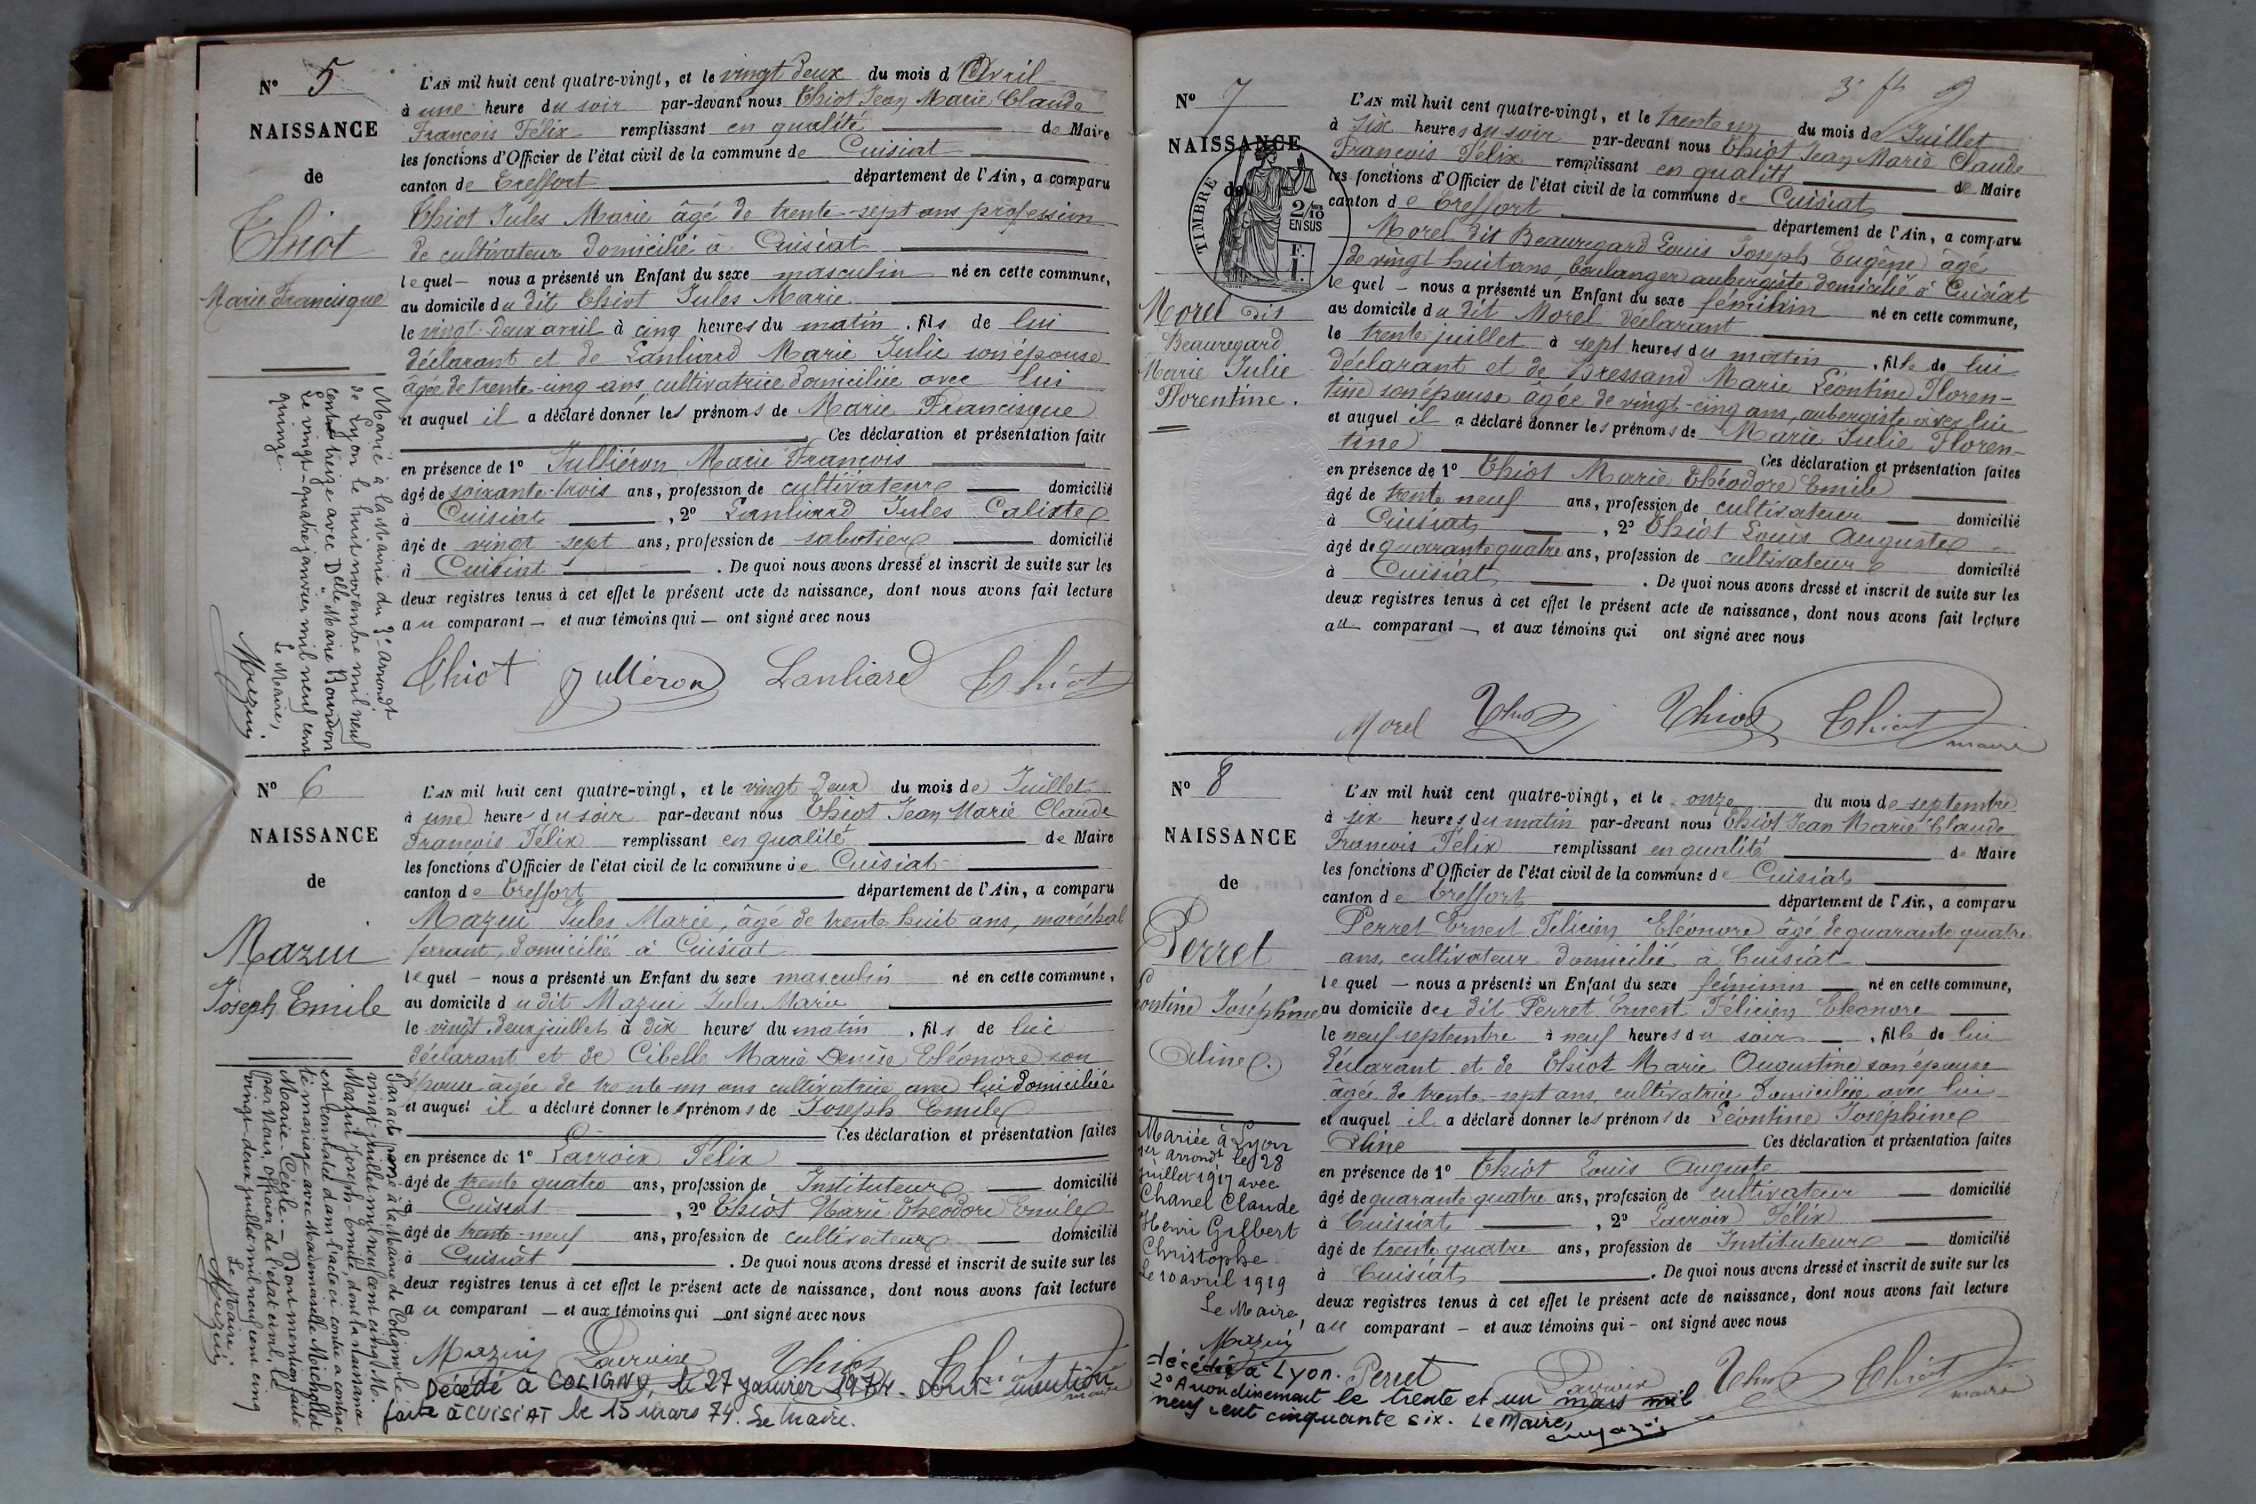 N° 5
NAISSANCE
de
Thiot
Marie Francisque
L'AN mil huit cent quatre-vingt, et le vingt deux du mois d'Avril
à une heure du soir par-devant nous Thiot Jean Marie Claude
François Félix remplissant en qualité de Maire
les fonctions d'Officier de l'état civil de la commune de Cuisiat
canton de Treffort département de l'Ain, a comparu
Thiot Jules Marie âgé de trente-sept ans profession
de cultivateur domicilié à Cuisiat
lequel nous a présenté un Enfant du sexe masculin né en cette commune,
au domicile du dit Thiot Jules Marie
le vingt-deux avril à cinq heures du matin, fils de lui
déclarant et de Lanliard Marie Julie son épouse
âgée de trente-cinq ans, cultivatrice domiciliée avec lui
et auquel il a déclaré donner les prénoms de Marie Francisque
Ces déclaration et présentation faites
en présence de 1° Julliéron Marie François
âgé de soixante-trois ans, profession de cultivateur domicilié
à Cuisiat, 2° Lanliard Jules Calixte
âgé de vingt-sept ans, profession de sabotier domicilié
à Cuisiat. De quoi nous avons dressé et inscrit de suite sur les
deux registres tenus à cet effet le présent acte de naissance, dont nous avons fait lecture
au comparant et aux témoins qui ont signé avec nous
Thiot Julliéron Lanliard Thiot
Marié à la Mairie du 3e Arrondt
de Lyon le huit novembre mil neuf
cent treize avec Delle Marie Bourdon
Le vingt-quatre janvier mil neuf cent
quinze.
Le Maire,
Mazuy
N° 6
NAISSANCE
de
Mazui
Joseph Emile
L'AN mil huit cent quatre-vingt, et le vingt deux du mois de Juillet
à une heure du soir par-devant nous Thiot Jean Marie Claude
François Félix remplissant en qualité de Maire
les fonctions d'Officier de l'état civil de la commune de Cuisiat
canton de Treffort département de l'Ain, a comparu
Mazui Jules Marie, âgé de trente huit ans, maréchal
ferrant, domicilié à Cuisiat
lequel nous a présenté un Enfant du sexe masculin né en cette commune,
au domicile du dit Mazui Jules Marie
le vingt deux juillet à dix heures du matin, fils de lui
déclarant et de Cibelle Marie Denise Eléonore son
épouse âgée de trente-un ans cultivatrice avec lui domiciliée
et auquel il a déclaré donner les prénoms de Joseph Emile
Ces déclaration et présentation faites
en présence de 1° Lacroix Félix
âgé de trente quatre ans, profession de Instituteur domicilié
à Cuisiat, 2° Thiot Marie Théodore Emile
âgé de trente-neuf ans, profession de cultivateur domicilié
à Cuisiat. De quoi nous avons dressé et inscrit de suite sur les
deux registres tenus à cet effet le présent acte de naissance, dont nous avons fait lecture
au comparant et aux témoins qui ont signé avec nous
Mazui Lacroix Thiot Thiot maire
Décédé à COLIGNY, le 27 janvier 1974. Dont mention
faite à CUISIAT le 15 mars 74. Le maire.
Par acte passé à la Mairie de Coligny le
vingt juillet mil neuf cent cinq, M.
Mazui Joseph-Emile, dont la naissance
est constatée dans l'acte ci-contre a contrac
té mariage avec Mademoiselle Michollet
Marie-Cécile. Dont mention faite
par Nous, officier de l'état civil, le
vingt-deux juillet mil neuf cent cinq
Le Maire
Mazuy
3e f. 9
N° 7
NAISSANCE
de
TIMBRE
2/10
EN SUS
F.
I.
Morel dit
Beauregard
Marie Julie
Florentine.
L'AN mil huit cent quatre-vingt, et le trente un du mois de Juillet
à six heures du soir par-devant nous Thiot Jean Marie Claude
François Félix remplissant en qualité de Maire
les fonctions d'Officier de l'état civil de la commune de Cuisiat
canton de Treffort département de l'Ain, a comparu
Morel dit Beauregard Louis Joseph Eugène âgé
de vingt huit ans, boulanger aubergiste domicilié à Cuisiat
lequel nous a présenté un Enfant du sexe féminin né en cette commune,
au domicile du dit Morel déclarant
le trente juillet à sept heures du matin, fille de lui
déclarant et de Bressand Marie Léontine Floren-
tine son épouse âgée de vingt-cinq ans, aubergiste avec lui
et auquel il a déclaré donner les prénoms de Marie Julie Floren-
tine Ces déclaration et présentation faites
en présence de 1° Thiot Marie Théodore Emile
âgé de trente neuf ans, profession de cultivateur domicilié
à Cuisiat, 2° Thiot Louis Auguste
âgé de quarante quatre ans, profession de cultivateur domicilié
à Cuisiat. De quoi nous avons dressé et inscrit de suite sur les
deux registres tenus à cet effet le présent acte de naissance, dont nous avons fait lecture
au comparant et aux témoins qui ont signé avec nous
Morel Thiot Thiot Thiot maire
N° 8
NAISSANCE
de
Perret
Léontine Joséphine
Aline.
L'AN mil huit cent quatre-vingt, et le onze du mois de septembre
à six heures du matin par-devant nous Thiot Jean Marie Claude
François Félix remplissant en qualité de Maire
les fonctions d'Officier de l'état civil de la commune de Cuisiat
canton de Treffort département de l'Ain, a comparu
Perret Ernest Félicien Eléonore âgé de quarante quatre
ans, cultivateur domicilié à Cuisiat
lequel nous a présenté un Enfant du sexe féminin né en cette commune,
au domicile du dit Perret Ernest Félicien Eléonore
le neuf septembre à neuf heures du soir, fille de lui
déclarant et de Thiot Marie Augustine son épouse
âgée de trente-sept ans, cultivatrice domiciliée avec lui
et auquel il a déclaré donner les prénoms de Léontine Joséphine
Aline Ces déclaration et présentation faites
en présence de 1° Thiot Louis Auguste
âgé de quarante quatre ans, profession de cultivateur domicilié
à Cuisiat, 2° Lacroix Félix
âgé de trente quatre ans, profession de Instituteur domicilié
à Cuisiat. De quoi nous avons dressé et inscrit de suite sur les
deux registres tenus à cet effet le présent acte de naissance, dont nous avons fait lecture
au comparant et aux témoins qui ont signé avec nous
Perret Lacroix Thiot Thiot maire
Mariée à Lyon
1er arrondt le 28
juillet 1917 avec
Chanel Claude
Henri Gilbert
Christophe
Le 10 avril 1919
Le Maire,
Mazuy
décédée à Lyon.
2° Arrondissement le trente et un mars mil
neuf cent cinquante six. Le Maire,